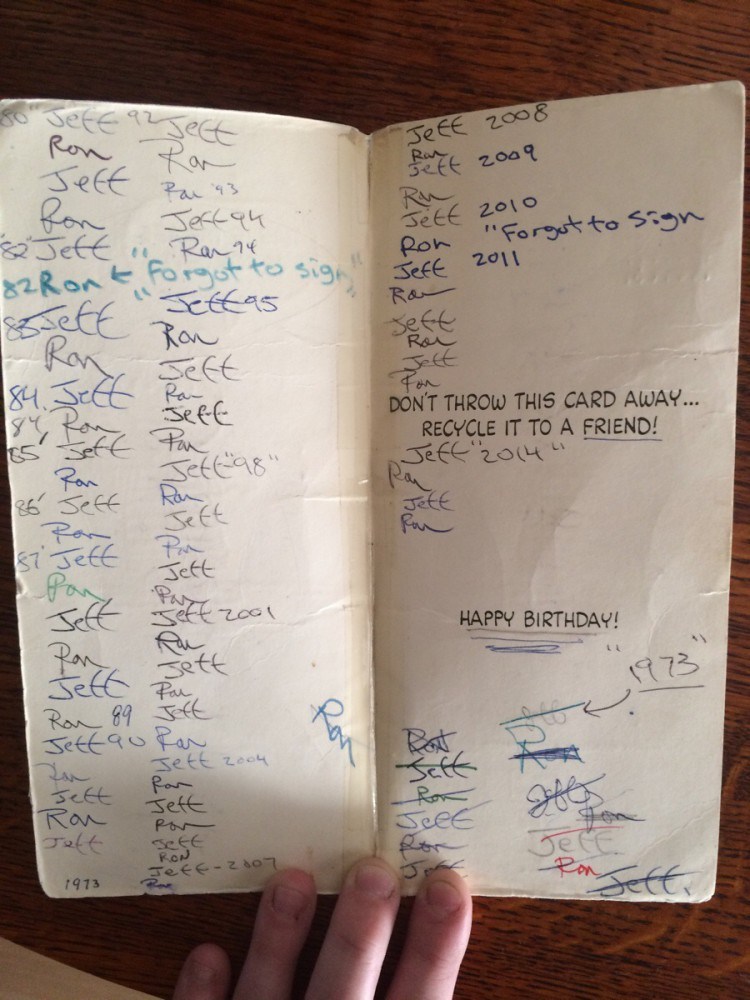 80" Jeff
Ron
Jeff
Ron
"82" Jeff
82 Ron ← "Forgot to sign"
83 Jeff
Ron
84. Jeff
84' Ron
85' Jeff
Ron
86' Jeff
Ron
87' Jeff
Ron
Jeff
Ron
Jeff
Ron 89
Jeff 90
Ron
Jeff
Ron
Jeff
1973
92 Jeff
Ron
Ron '93
Jeff 94
Ron 94
Jeff 95
Ron
Jeff
Ron
Jeff
Ron
Jeff "98"
Ron
Jeff
Ron
Jeff
Ron
Jeff 2001
Ron
Jeff
Ron
Jeff
Ron
Jeff 2004
Ron
Jeff
Ron
Jeff
RON
Jeff - 2007
Ron
Ron
Jeff 2008
Ron
Jeff 2009
Ron
Jeff 2010
Ron "Forgot to sign
Jeff 2011
Ron
Jeff
Ron
Jeff
Ron
DON'T THROW THIS CARD AWAY...
RECYCLE IT TO A FRIEND!
Jeff "2014"
Ron
Jeff
Ron
HAPPY BIRTHDAY!
"1973"
Ron
Jeff
Ron
Jeff
Ron
Jeff
Ron
Jeff
Ron
Jeff
Ron
Jeff.